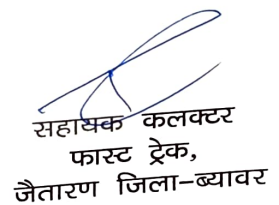 सहायक कलक्टर
फास्ट ट्रेक,
जैतारण जिला-ब्यावर